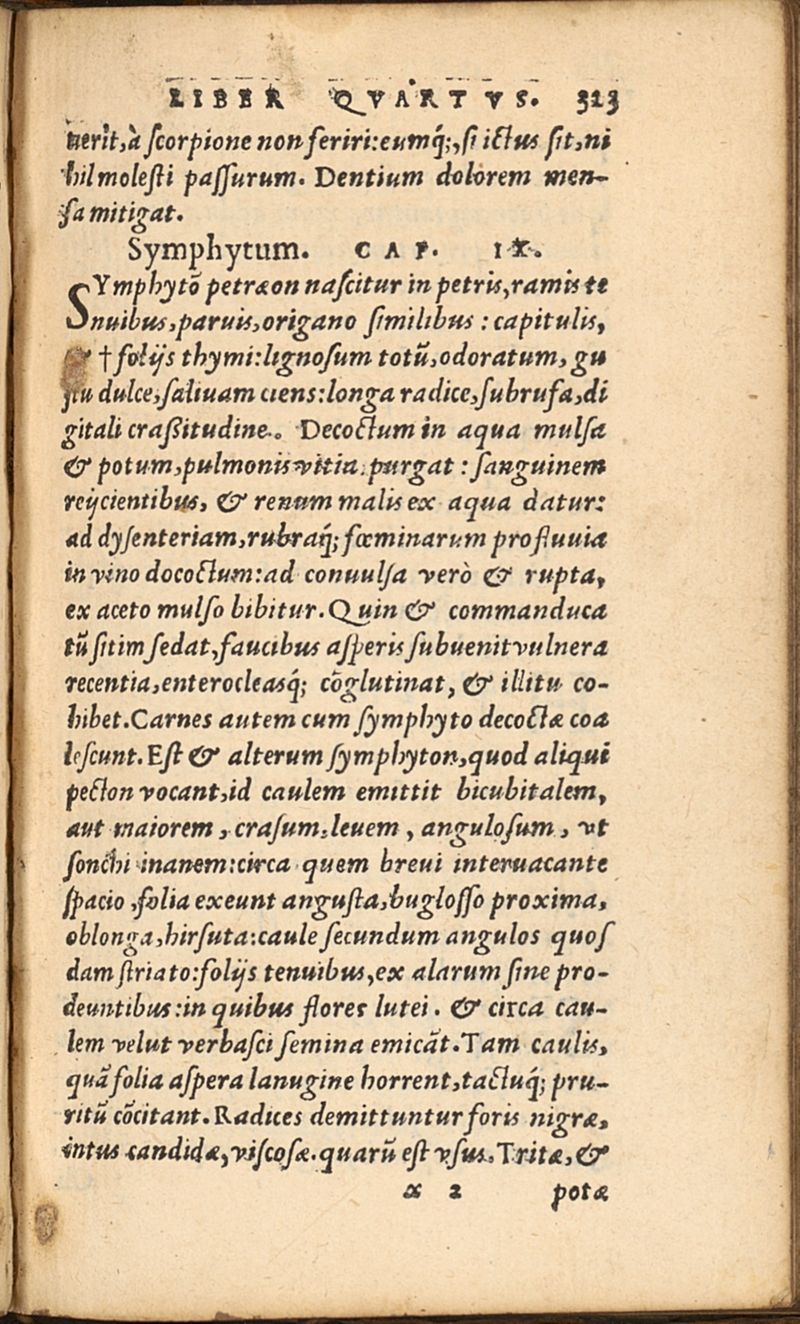 LIBER QVARTVS. 323
uerit, à scorpione non feriri: eumq́;, si ictus sit, ni
hil molesti passurum. Dentium dolorem men-
sa mitigat.
Symphytum. CAP. IX.
SYmphytō petræon nascitur in petris, ramis te
nuibus, paruis, origano similibus : capitulis,
& † folijs thymi: lignosum totū, odoratum, gu
stu dulce, saliuam ciens: longa radice, subrufa, di
gitali craßitudine. Decoctum in aqua mulsa
& potum, pulmonis vitia purgat : sanguinem
reijcientibus, & renum malis ex aqua datur:
ad dysenteriam, rubraq́; fœminarum profluuia
in vino dococtum: ad conuulsa verò & rupta,
ex aceto mulso bibitur. Quin & commanduca
tū sitim sedat, faucibus asperis subuenit vulnera
recentia, enterocleasq́; cōglutinat, & illitu co-
hibet. Carnes autem cum symphyto decoctæ coa
lescunt. Est & alterum symphyton, quod aliqui
pecton vocant, id caulem emittit bicubitalem,
aut maiorem, crasum, leuem, angulosum, vt
sonchi inanem: circa quem breui interuacante
spacio, folia exeunt angusta, buglosso proxima,
oblonga, hirsuta: caule secundum angulos quos
dam striato: folijs tenuibus, ex alarum sine pro-
deuntibus: in quibus flores lutei. & circa cau-
lem velut verbasci semina emicāt. Tam caulis,
quā folia aspera lanugine horrent, tactuq́; pru-
ritū cōcitant. Radices demittuntur foris nigræ,
intus candidæ, viscosæ. quarū est vsus. Tritæ, &
x 2 potæ